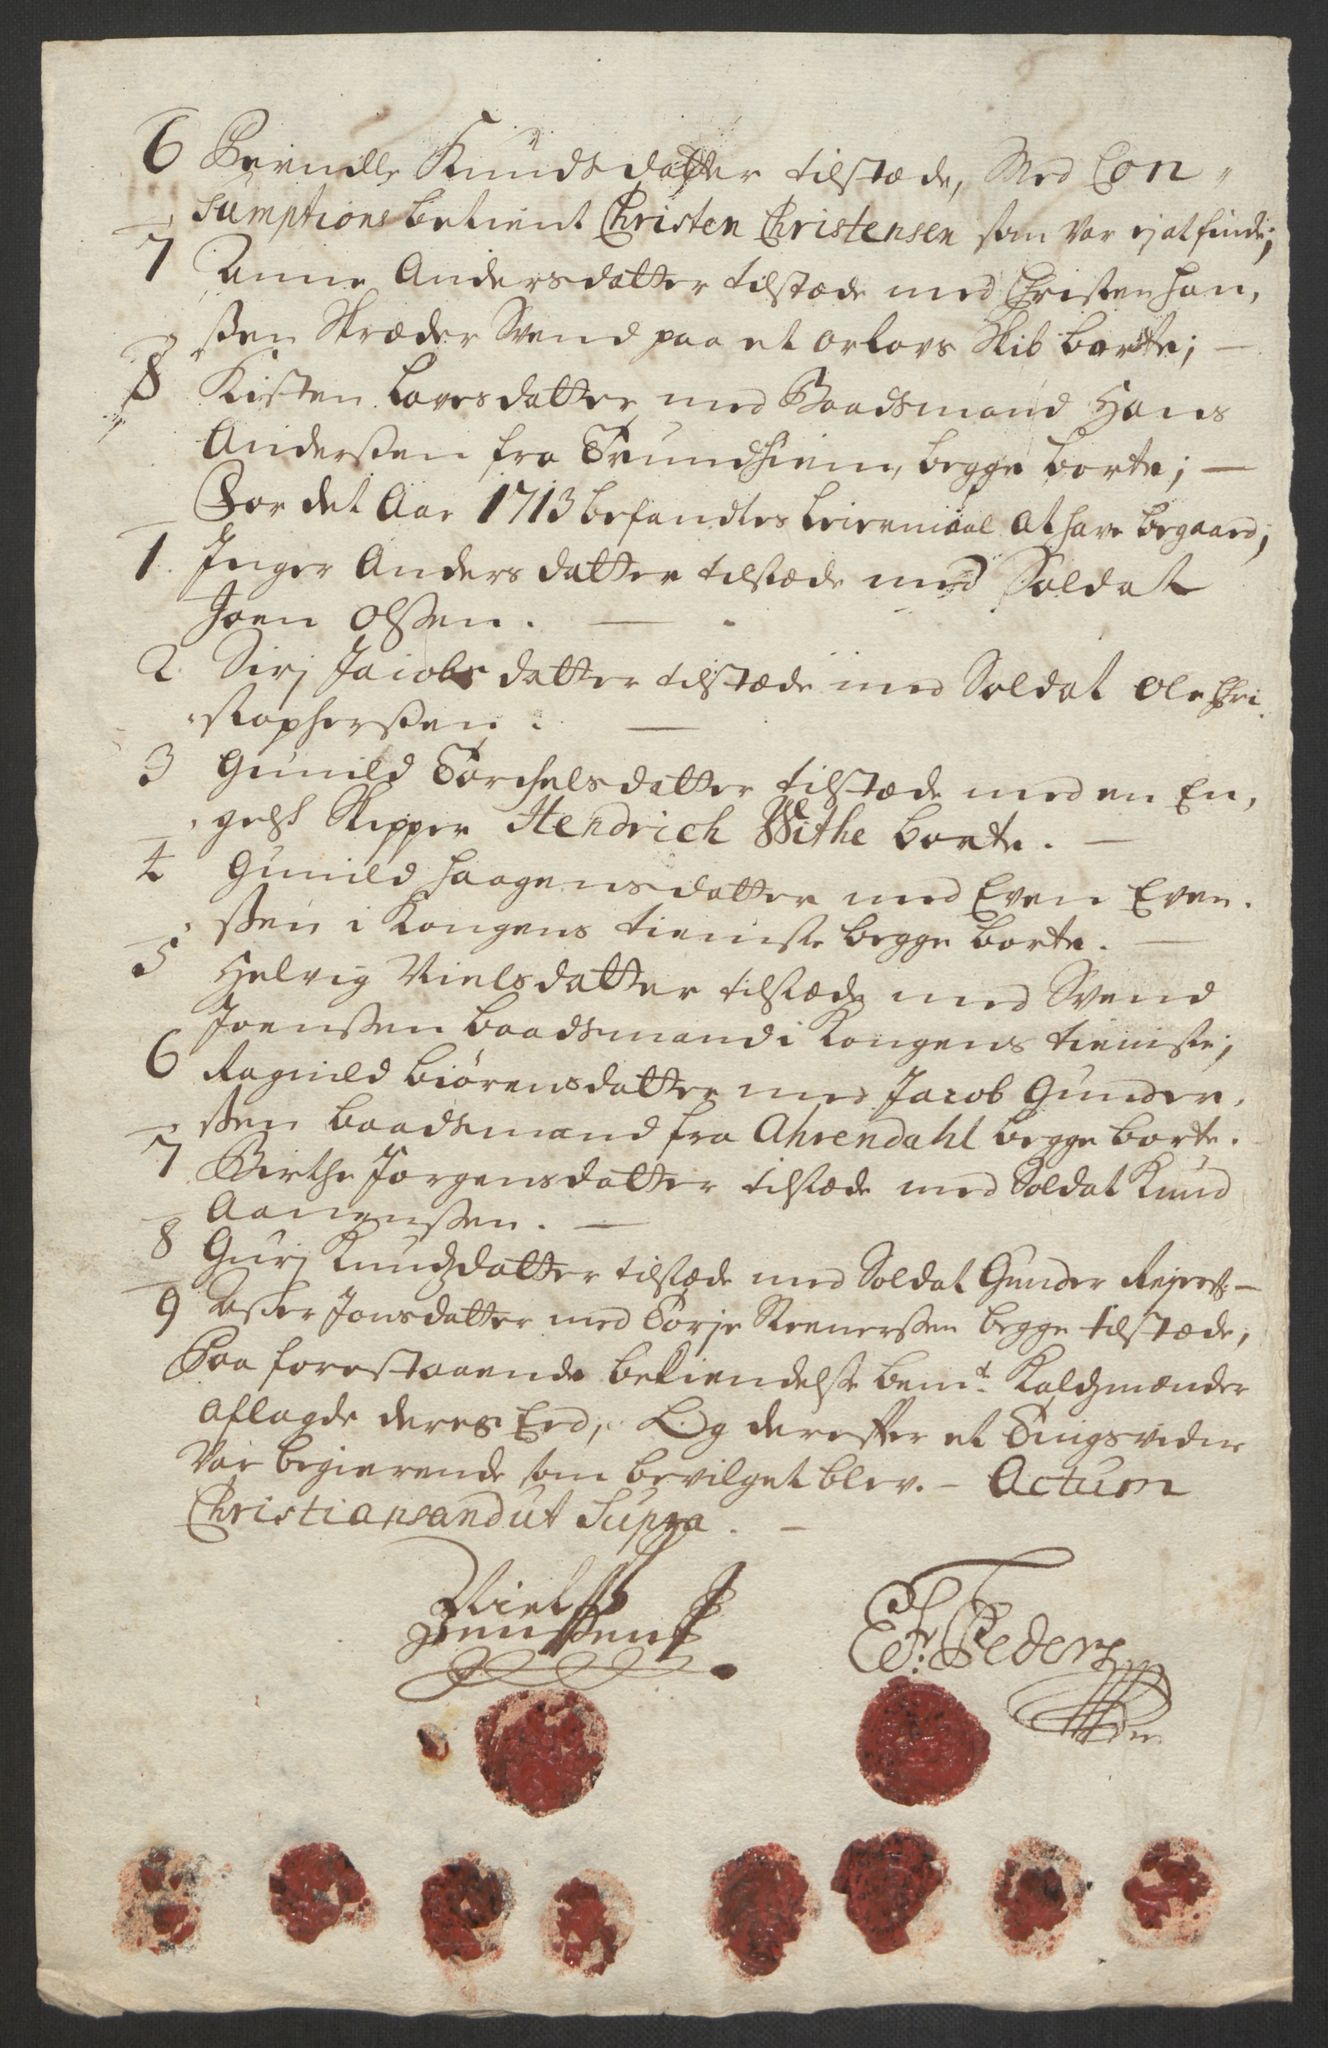 6 Berndlle Knudsdatter tilstæde, Med Con„
sumptions betient Christen Christensen som var ej at finde;
7 Anne Andersdatter tilstæde med Christen Han,
ßen Skræder Svend paa et orlovs Skib borte; —
8 Kisten Lavesdatter med Baadsmand Hans
Anderßen fra Trundhiem, begge borte; —
For det Aar 1713 befandtes Leiermaal at have begaaed;
1. Inger Andersdatter tilstæde med Soldat
Joen Olßen. —
2 Sirj Jacobsdatter tilstæde med Soldat Ole Chri
stopherßen. —
3 Gunild Torchelsdatter tilstæde med en En,
gelsk Skipper Hendrich Withe borte. —
4 Gunild Haagensdatter med Even Even.
ßen i Kongens tieniste begge borte. —
5 Helvig Nielsdatter tilstæde med Svend
Joenßen Baadsmand i Kongens tieniste;
6 Ragnild Biørensdatter med Jacob Gunder,
ßen Baadsmand fra Ahrendahl begge borte.
7 Birthe Jørgensdatter tilstæde med Soldat Knud
Aanenßen. —
8 Gurj Knudzdatter tilstæde med Soldat Gunder Rejerß: —
9 Aßer Jonsdatter med Torje Stenerßen begge tilstæde;
Paa forestaaende bekiendelse bemt. Kaldsmænder
aflagde deres Eed, Og derefter et Tingsvidne
var begierende som bevilget blev. — Actum
Christiansand ut Supra. —
Niels
Jenßen
E. F. Feders